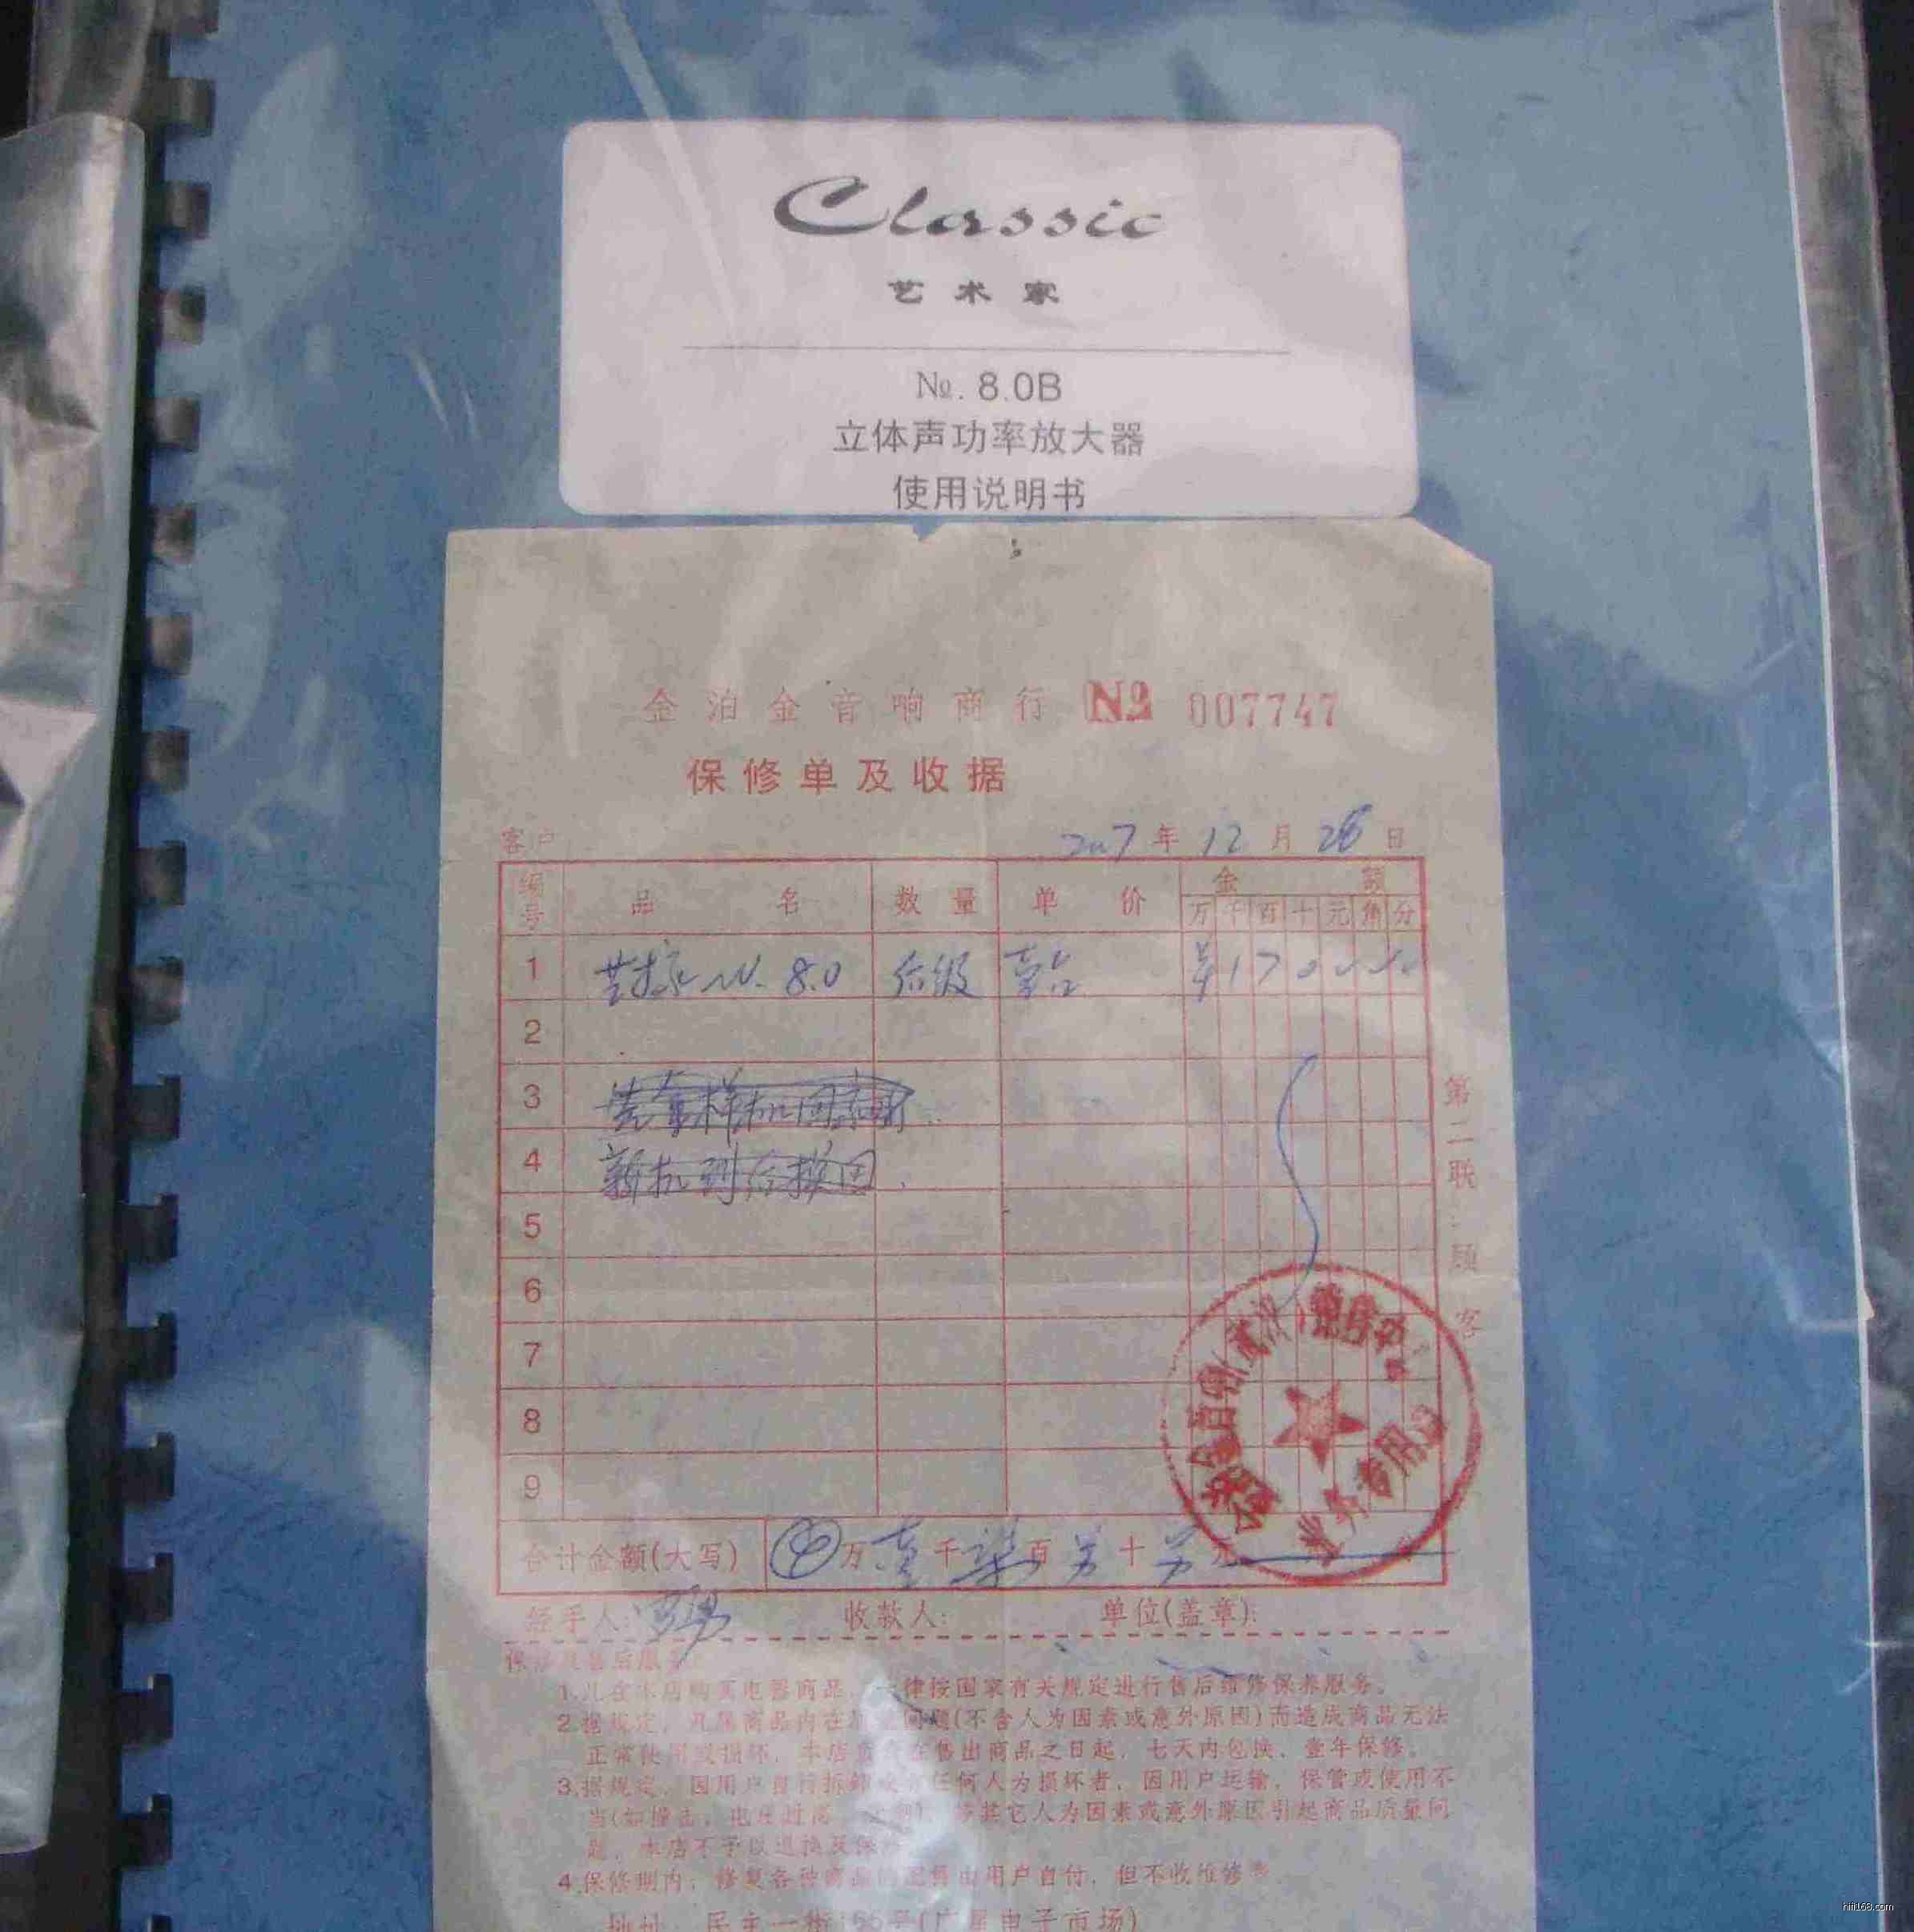 Classic
艺术家
№. 8.0B
立体声功率放大器
使用说明书
金泊金音响商行 № 007747
保修单及收据
客户 2007年12月26日
编号 品名 数量 单价 金额
万千百十元角分
1 艺术家 N. 8.0 后级 壹台 ¥1700
2
3
4 新机到后换回.
5
6
7
8
9
第二联:顾客
业务专用
合计金额(大写) 万壹千柒百另十另元
经手人: 收款人: 单位(盖章):
保修及售后服务:
1.凡在本店购买电器商品,一律按国家有关规定进行售后维修保养服务。
2.据规定,凡属商品内在问题(不含人为因素或意外原因)而造成商品无法
正常使用或损坏,本店在售出商品之日起,七天内包换,壹年保修。
3.据规定,因用户自行拆卸任何人为损坏者,因用户运输,保管或使用不
当(如撞击,电压过高,等其它人为因素或意外原因引起商品质量问
题,本店不予以退换及保修
4.保修期内,修复各种商品的配件由用户自付,但不收维修费.
地址: 民主一街166号(广星电子市场)
hifi168.com